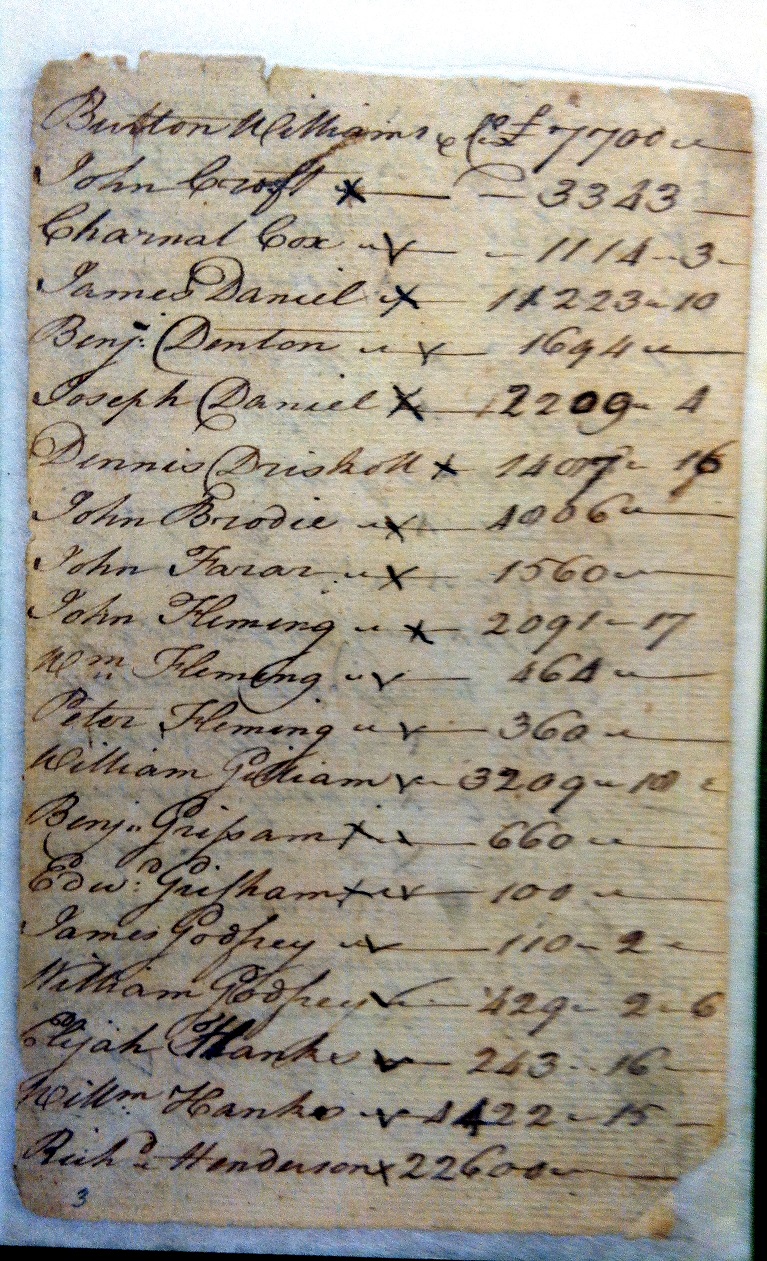 Button Williams x £ 7700 "
John Croft x — 3343 —
Charnal Cox " v — 1114 - 3 -
James Daniel x — 11223 - 10
Benj. Denton " v — 1694 "
Joseph Daniel X — 2209 - 4
Dennis Driskoll x - 1407 - 16
John Brodie " x — 4006 "
John Farar " x — 1560 "
John Fleming " x — 2091 - 17
Wm Fleming " v — 464 "
Peter Fleming " v — 360 "
William Gilliam v - 3209 - 10 "
Benjn Grissam x " — 660 "
Edwd Grisham x " v — 100 "
James Godfrey " v — 110 - 2 -
William Godfrey v — 429 - 2 - 6
Elijah Hanks v — 243 - 16 -
Willm Hanks " v - 4422 - 15 -
Richd Henderson x 22600 "
3